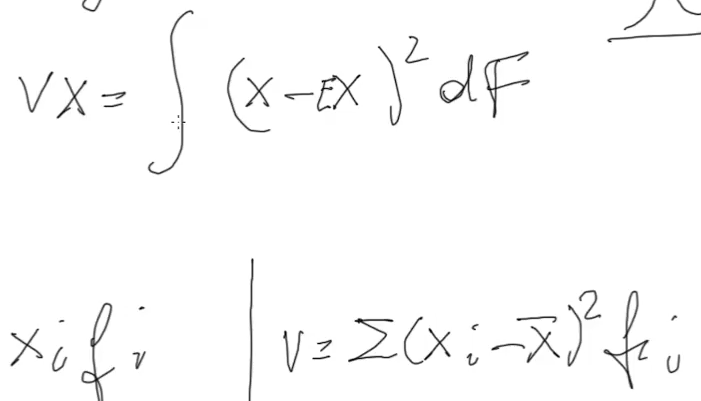 VX = ∫ (x - EX)² dF
xᵢ fᵢ | V = Σ(xᵢ - x̄)² fᵢ